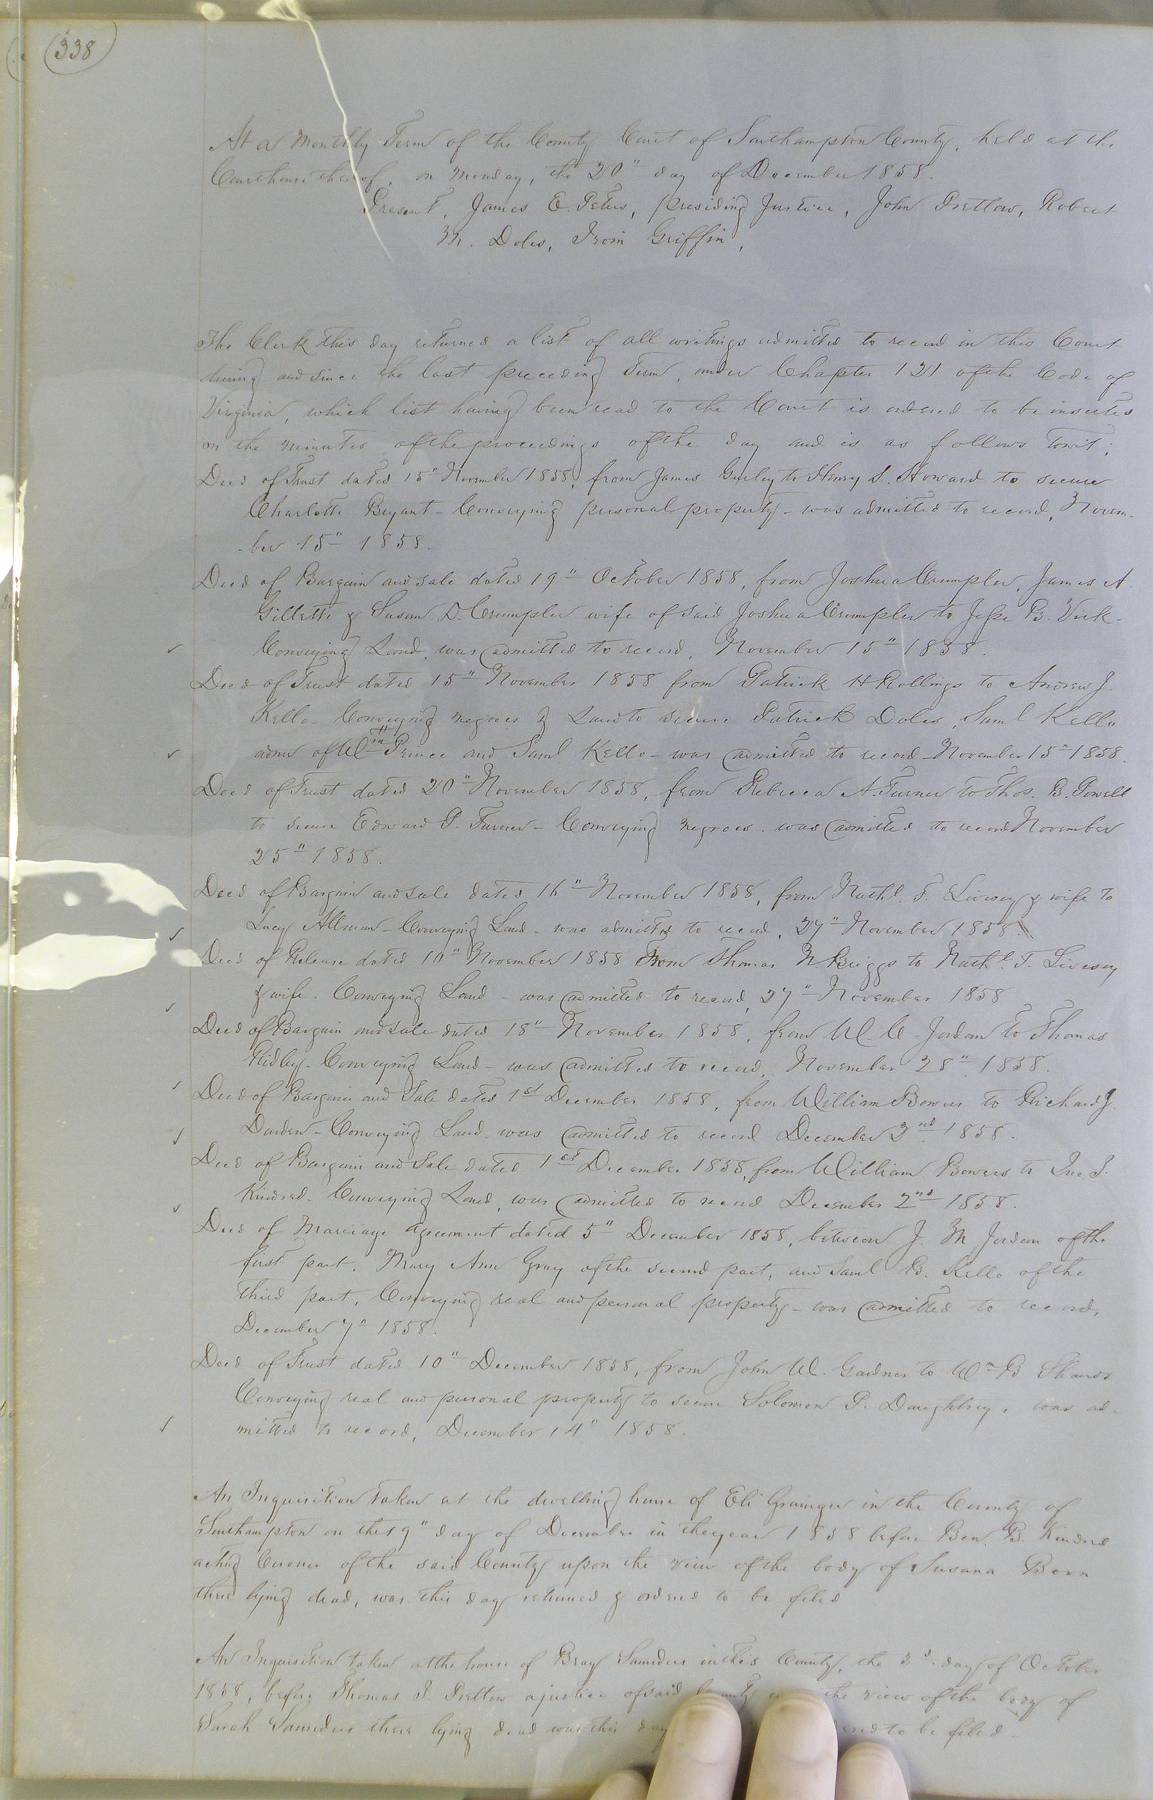 338
At a Monthly Term of the County Court of Southampton County, held at the
Courthouse thereof, on Monday, the 20" day of December 1858.
Present, James E. Peters, presiding Justice, John Pretlow, Robert
M. Doles, Irvin Griffin,
The Clerk this day returned a list of all writings admitted to record in this Court
during and since the last preceeding Term, under Chapter 121 of the Code of
Virginia, which list having been read to the Court is ordered to be inserted
in the minutes of the proceedings of the day and is as follows towit:
Deed of Trust dated 15" November 1858, from James Gurley to Henry S. Howard to secure
Charlotte Bryant - Conveying personal property - was admitted to record, Novem-
-ber 15" 1858.
Deed of Bargain and Sale dated 19" October 1858, from Joshua Crumpler, James A.
Gillette & Susan D. Crumpler wife of said Joshua Crumpler to Jesse B. Vick -
Conveying Land, was admitted to record, November 15" 1858.
Deed of Trust dated 15" November 1858 from Patrick H Rollings to Andrew J.
Kello - Conveying negroes & Land to secure Patrick Doles, Saml Kello
admr of Wm Prince and Saml Kello - was admitted to record - November 15" 1858.
Deed of Trust dated 20" November 1858, from Rebecca A. Turner to Thos. B. Powell
to secure Edward P. Turner - Conveying negroes. was admitted to record November
25" 1858.
Deed of Bargain and Sale dated 16" November 1858, from Nathl. T. Livesay & wife to
Lucy Allman - Conveying Land - was admitted to record, 27" November 1858.
Deed of Release dated 10" November 1858 From Thomas N. Briggs to Nathl. T. Livesay
& wife. Conveying Land - was admitted to record, 27" November 1858
Deed of Bargain and Sale dated 18" November 1858, from W. C. Jordan to Thomas
Ridley - Conveying Land - was admitted to record, November 28" 1858.
Deed of Bargain and Sale dated 1st December 1858, from William Bowers to Richard J.
Darden - Conveying Land - was admitted to record December 2nd 1858.
Deed of Bargain and Sale dated 1st December 1858, from William Bowers to Jno J.
Kindred - Conveying Land, was admitted to record December 2nd 1858.
Deed of Marriage Agreement dated 5" December 1858, between J. M Jordan of the
first part, Mary Ann Gray of the second part, and Saml B. Kello of the
third part, Conveying real and personal property - was admitted to record,
December 7" 1858.
Deed of Trust dated 10" December 1858, from John W. Gardner to Wm B Shands
Conveying real and personal property to secure Solomon P. Daughtrey, was ad-
mitted to record, December 14" 1858.
An Inquisition taken at the dwelling house of Eli Grainger in the County of
Southampton on the 19" day of December in the year 1858 before Ben. B. Kindred
acting Coroner of the said County upon the view of the body of Susana Born
there lying dead, was this day returned & ordered to be filed
An Inquisition taken at the house of Bray Saunders in this County, the 3d. day of October
1858, before Thomas J. Pretlow a justice of said County the view of the body of
Sarah Saunders there lying dead was this day to be filed -